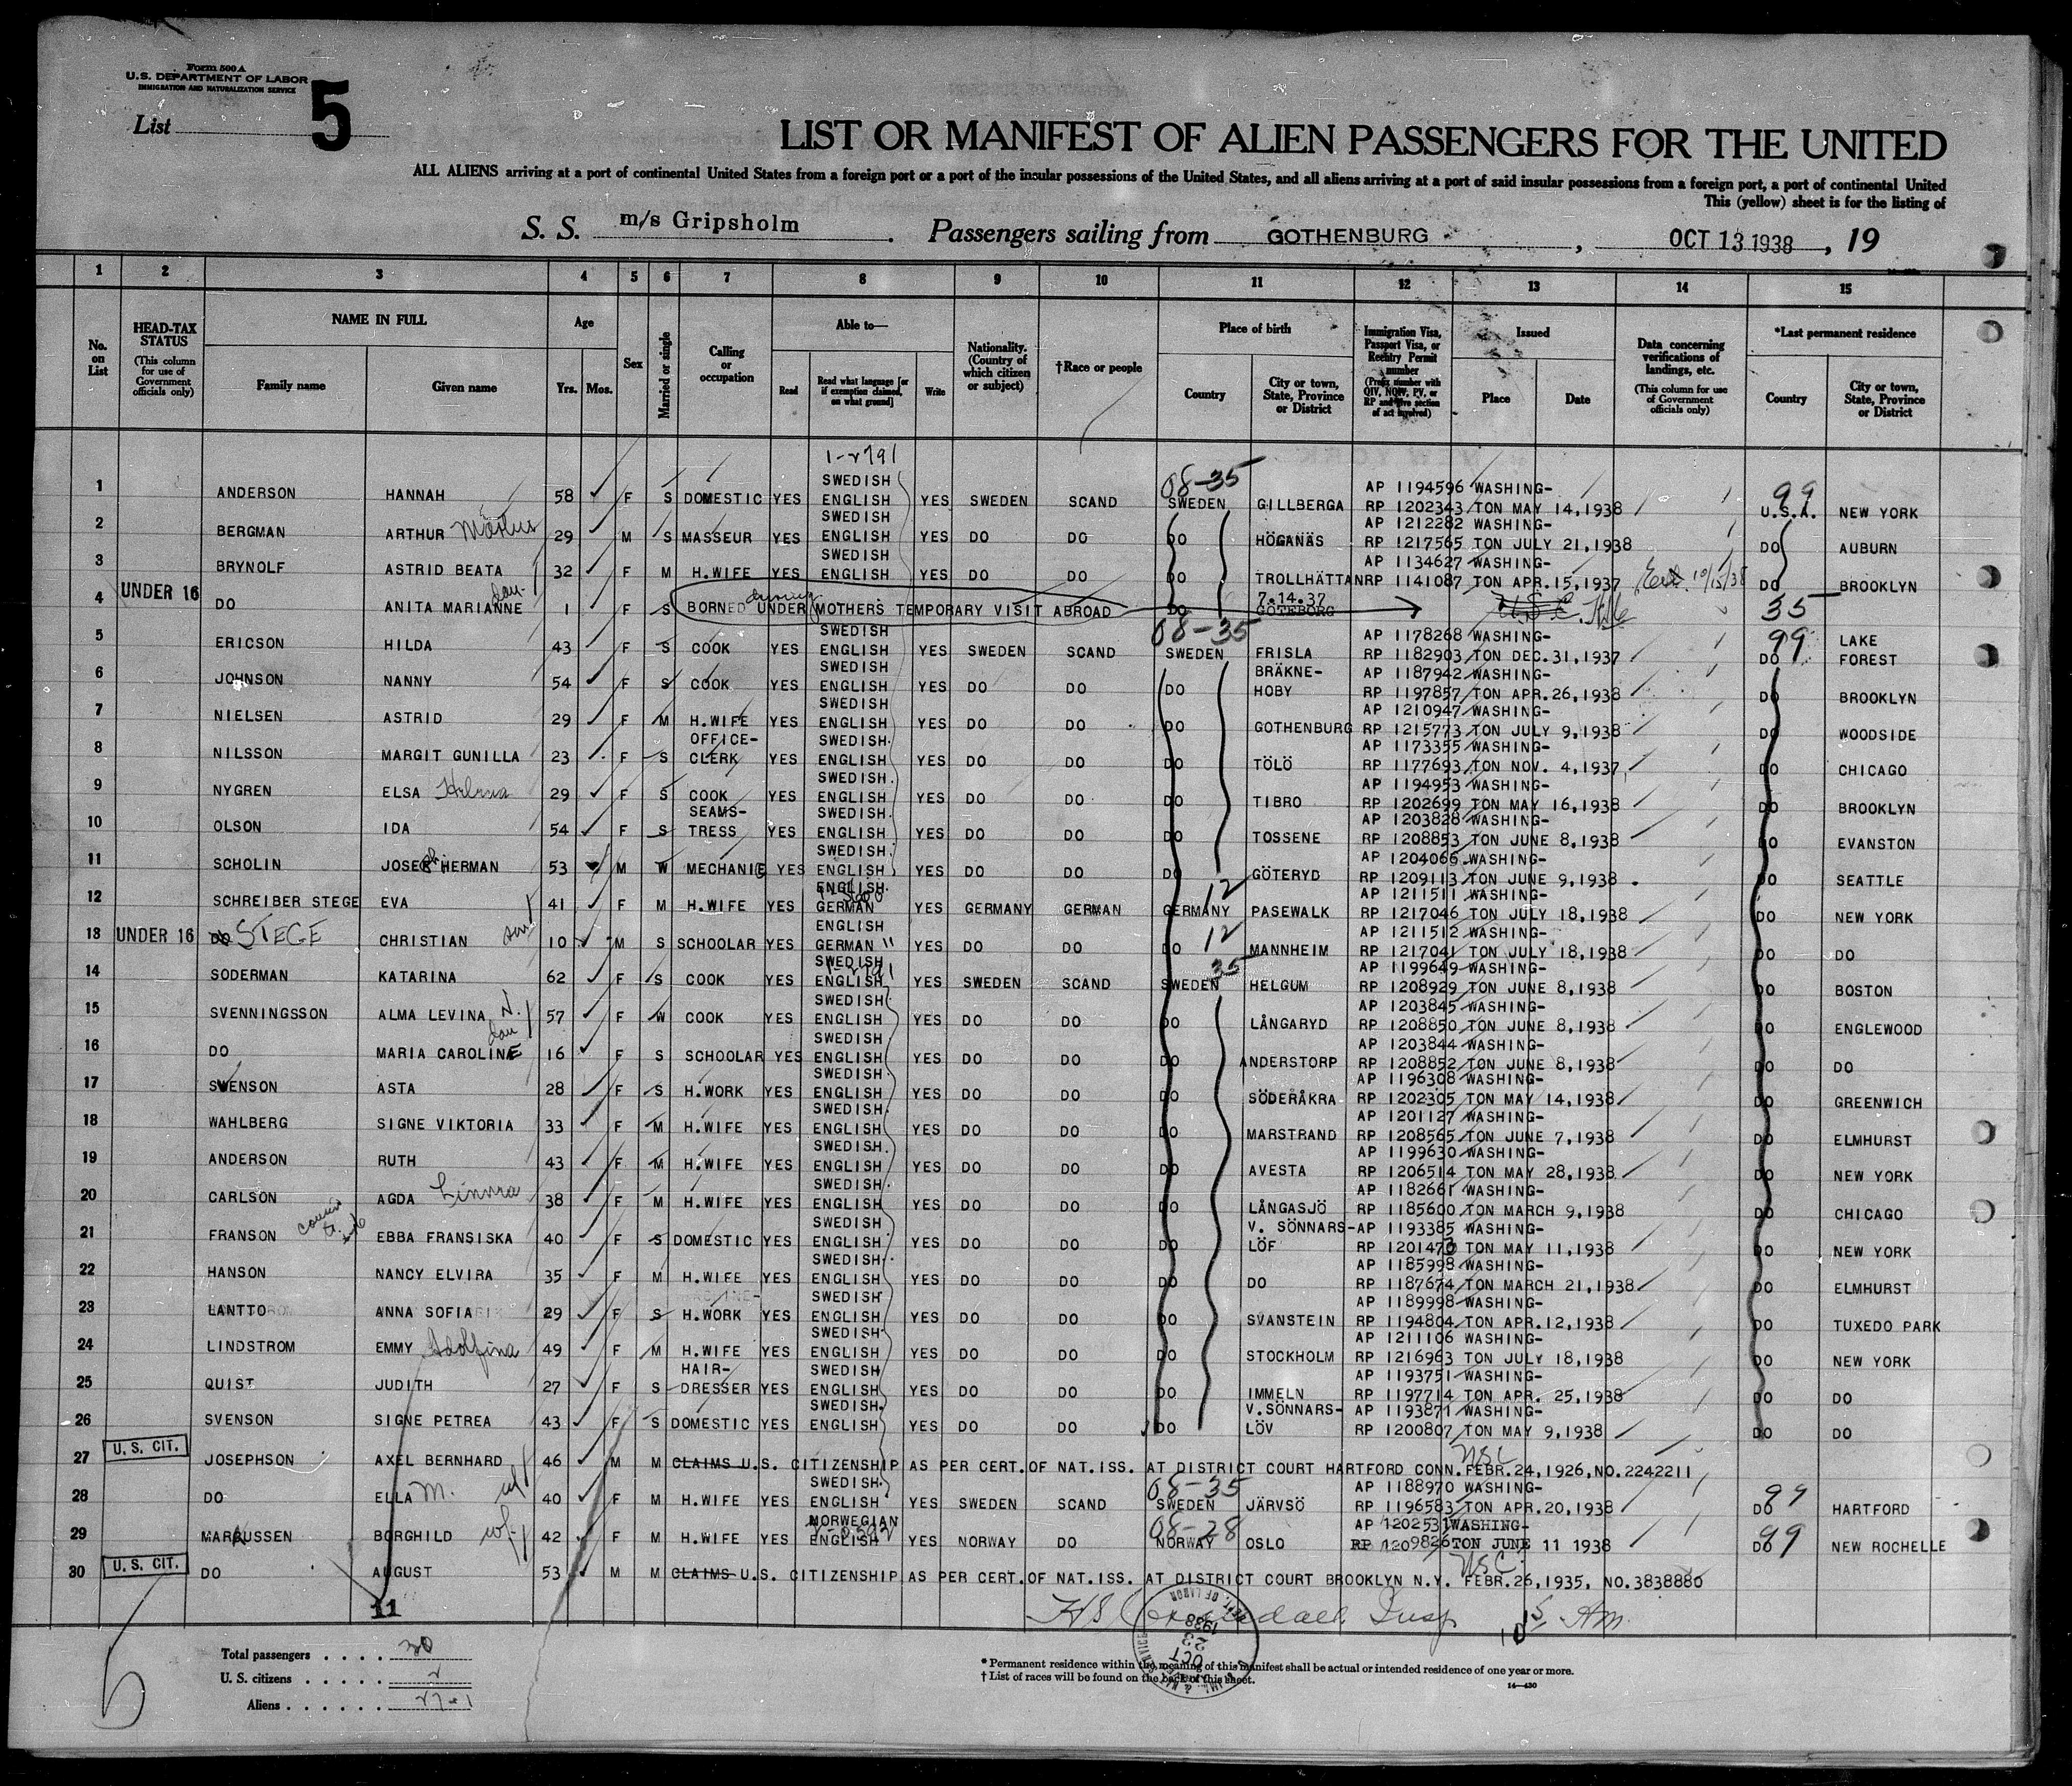 Form 500 A
U.S. DEPARTMENT OF LABOR
IMMIGRATION AND NATURALIZATION SERVICE
List 5
LIST OR MANIFEST OF ALIEN PASSENGERS FOR THE UNITED
ALL ALIENS arriving at a port of continental United States from a foreign port or a port of the insular possessions of the United States, and all aliens arriving at a port of said insular possessions from a foreign port, a port of continental United
This (yellow) sheet is for the listing of
S. S. m/s Gripsholm. Passengers sailing from GOTHENBURG, OCT 13 1938, 19
1 2 3 4 5 6 7 8 9 10 11 12 13 14 15
No. on List
HEAD-TAX STATUS (This column for use of Government officials only)
NAME IN FULL Family name Given name
Age Yrs. Mos.
Sex
Married or single
Calling or occupation
Able to— Read Read what language [or if exemption claimed, on what ground] Write
Nationality. (Country of which citizen or subject)
†Race or people
Place of birth Country City or town, State, Province or District
Immigration Visa, Passport Visa, or Reentry Permit number (Prefix number with QIV, NQIV, PV, or RP and give section of act involved)
Issued Place Date
Data concerning verifications of landings, etc. (This column for use of Government officials only)
*Last permanent residence Country City or town, State, Province or District
1 ANDERSON HANNAH 58 F S DOMESTIC YES SWEDISH ENGLISH YES SWEDEN SCAND 08-35 SWEDEN GILLBERGA AP 1194596 RP 1202343 WASHINGTON MAY 14,1938 99 U.S.A. NEW YORK
2 BERGMAN ARTHUR 29 M S MASSEUR YES SWEDISH ENGLISH YES DO DO DO HÖGANÄS AP 1212282 RP 1217565 WASHINGTON JULY 21,1938 DO AUBURN
3 BRYNOLF ASTRID BEATA 32 F M H.WIFE YES SWEDISH ENGLISH YES DO DO DO TROLLHÄTTAN AP 1134627 RP 1141087 WASHINGTON APR.15,1937 10/15/38 DO BROOKLYN
4 UNDER 16 DO ANITA MARIANNE dau 1 F S BORNED UNDER during MOTHERS TEMPORARY VISIT ABROAD DO 7.14.37 GÖTEBORG 35
5 ERICSON HILDA 43 F S COOK YES SWEDISH ENGLISH YES SWEDEN SCAND 08-35 SWEDEN FRISLA AP 1178268 RP 1182903 WASHINGTON DEC.31,1937 99 DO LAKE FOREST
6 JOHNSON NANNY 54 F S COOK YES SWEDISH ENGLISH YES DO DO DO BRÄKNE-HOBY AP 1187942 RP 1197857 WASHINGTON APR.26,1938 DO BROOKLYN
7 NIELSEN ASTRID 29 F M H.WIFE YES SWEDISH ENGLISH YES DO DO DO GOTHENBURG AP 1210947 RP 1215773 WASHINGTON JULY 9,1938 DO WOODSIDE
8 NILSSON MARGIT GUNILLA 23 F S OFFICE-CLERK YES SWEDISH ENGLISH YES DO DO DO TÖLÖ AP 1173355 RP 1177693 WASHINGTON NOV. 4,1937 DO CHICAGO
9 NYGREN ELSA Helena 29 F S COOK YES SWEDISH ENGLISH YES DO DO DO TIBRO AP 1194953 RP 1202699 WASHINGTON MAY 16,1938 DO BROOKLYN
10 OLSON IDA 54 F S SEAMSTRESS YES SWEDISH ENGLISH YES DO DO DO TOSSENE AP 1203828 RP 1208853 WASHINGTON JUNE 8,1938 DO EVANSTON
11 SCHOLIN JOSEPH HERMAN 53 M W MECHANIC YES SWEDISH ENGLISH YES DO DO DO GÖTERYD AP 1204066 RP 1209113 WASHINGTON JUNE 9,1938 DO SEATTLE
12 SCHREIBER STEGE EVA 41 F M H.WIFE YES ENGLISH GERMAN YES GERMANY GERMAN GERMANY 12 PASEWALK AP 1211511 RP 1217046 WASHINGTON JULY 18,1938 DO NEW YORK
13 UNDER 16 STEGE CHRISTIAN son 10 M S SCHOOLAR YES ENGLISH GERMAN YES DO DO DO 12 MANNHEIM AP 1211512 RP 1217041 WASHINGTON JULY 18,1938 DO DO
14 SODERMAN KATARINA 62 F S COOK YES SWEDISH ENGLISH YES SWEDEN SCAND SWEDEN 35 HELGUM AP 1199649 RP 1208929 WASHINGTON JUNE 8,1938 DO BOSTON
15 SVENNINGSSON ALMA LEVINA 57 F W COOK YES SWEDISH ENGLISH YES DO DO DO LÅNGARYD AP 1203845 RP 1208850 WASHINGTON JUNE 8,1938 DO ENGLEWOOD
16 DO MARIA CAROLINE dau 16 F S SCHOOLAR YES SWEDISH ENGLISH YES DO DO DO ANDERSTORP AP 1203844 RP 1208852 WASHINGTON JUNE 8,1938 DO DO
17 SVENSON ASTA 28 F S H.WORK YES SWEDISH ENGLISH YES DO DO DO SÖDERÅKRA AP 1196308 RP 1202305 WASHINGTON MAY 14,1938 DO GREENWICH
18 WAHLBERG SIGNE VIKTORIA 33 F M H.WIFE YES SWEDISH ENGLISH YES DO DO DO MARSTRAND AP 1201127 RP 1208565 WASHINGTON JUNE 7,1938 DO ELMHURST
19 ANDERSON RUTH 43 F M H.WIFE YES SWEDISH ENGLISH YES DO DO DO AVESTA AP 1199630 RP 1206514 WASHINGTON MAY 28,1938 DO NEW YORK
20 CARLSON AGDA Linnea 38 F M H.WIFE YES SWEDISH ENGLISH YES DO DO DO LÅNGASJÖ AP 1182661 RP 1185600 WASHINGTON MARCH 9,1938 DO CHICAGO
21 FRANSON EBBA FRANSISKA 40 F S DOMESTIC YES SWEDISH ENGLISH YES DO DO DO V. SÖNNARSLÖF AP 1193385 RP 1201473 WASHINGTON MAY 11,1938 DO NEW YORK
22 HANSON NANCY ELVIRA 35 F M H.WIFE YES SWEDISH ENGLISH YES DO DO DO DO AP 1185998 RP 1187674 WASHINGTON MARCH 21,1938 DO ELMHURST
23 LANTTO ANNA SOFIA 29 F S H.WORK YES SWEDISH ENGLISH YES DO DO DO SVANSTEIN AP 1189998 RP 1194804 WASHINGTON APR.12,1938 DO TUXEDO PARK
24 LINDSTROM EMMY Adolfina 49 F M H.WIFE YES SWEDISH ENGLISH YES DO DO DO STOCKHOLM AP 1211106 RP 1216963 WASHINGTON JULY 18,1938 DO NEW YORK
25 QUIST JUDITH 27 F S HAIR-DRESSER YES SWEDISH ENGLISH YES DO DO DO IMMELN AP 1193751 RP 1197714 WASHINGTON APR. 25,1938 DO DO
26 SVENSON SIGNE PETREA 43 F S DOMESTIC YES SWEDISH ENGLISH YES DO DO DO V.SÖNNARSLÖV AP 1193871 RP 1200807 WASHINGTON MAY 9,1938 DO DO
27 U. S. CIT. JOSEPHSON AXEL BERNHARD 46 M M CLAIMS U.S. CITIZENSHIP AS PER CERT.OF NAT.ISS. AT DISTRICT COURT HARTFORD CONN.FEBR.24,1926,NO.2242211
28 DO ELLA M. wf 40 F M H.WIFE YES SWEDISH ENGLISH YES SWEDEN SCAND 08-35 SWEDEN JÄRVSÖ AP 1188970 RP 1196583 WASHINGTON APR.20,1938 99 DO HARTFORD
29 MARKUSSEN BORGHILD wf 42 F M H.WIFE YES NORWEGIAN ENGLISH YES NORWAY DO 08-28 NORWAY OSLO AP 1202531 RP 1209826 WASHINGTON JUNE 11 1938 99 DO NEW ROCHELLE
30 U. S. CIT. DO AUGUST 53 M M CLAIMS U.S. CITIZENSHIP AS PER CERT.OF NAT.ISS. AT DISTRICT COURT BROOKLYN N.Y. FEBR.26,1935, NO.3838880
11
Total passengers . . . . 30
U. S. citizens . . . . . 2
Aliens . . . . . .
*Permanent residence within the meaning of this manifest shall be actual or intended residence of one year or more.
†List of races will be found on the back of this sheet.
14—430